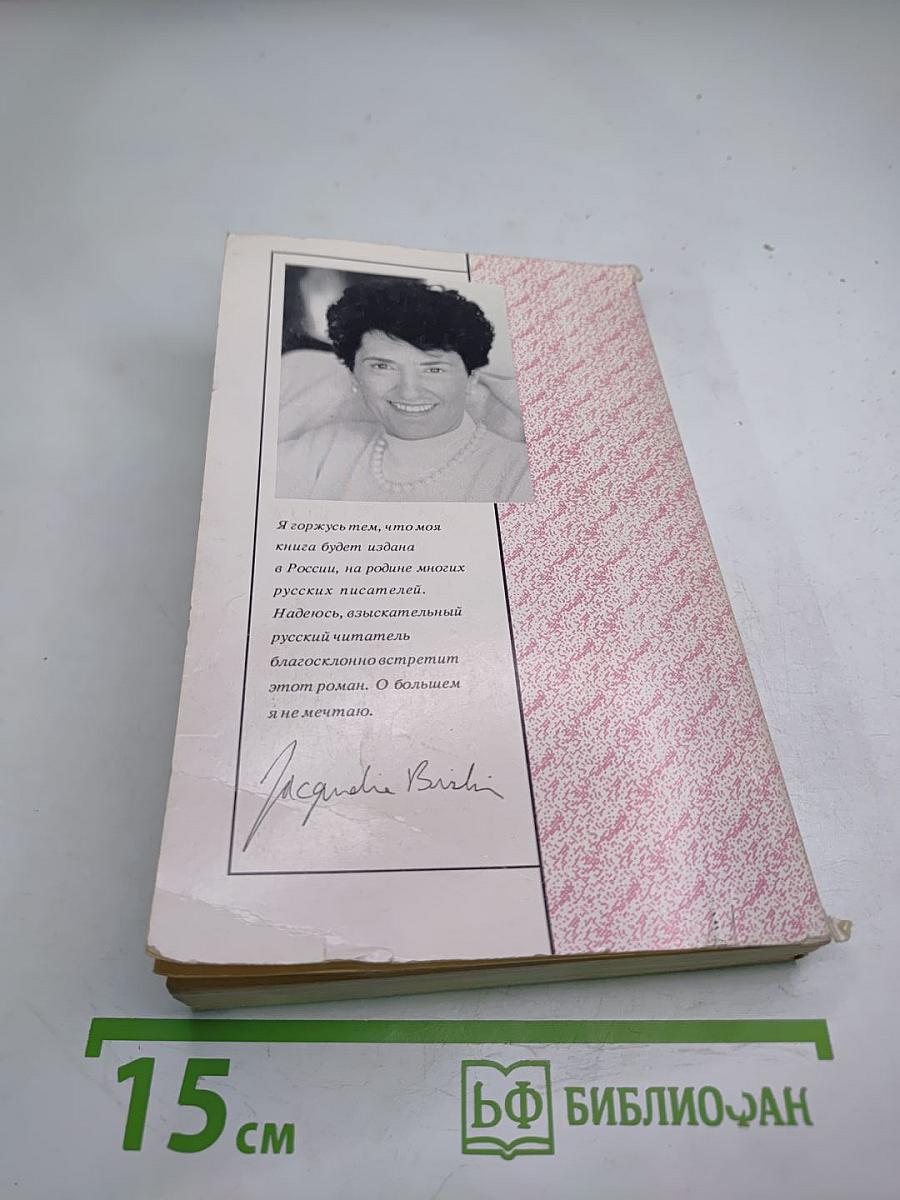 Я горжусь тем, что моя
книга будет издана
в России, на родине многих
русских писателей.
Надеюсь, взыскательный
русский читатель
благосклонно встретит
этот роман. О большем
я не мечтаю.
15 см
ЬФ БИБЛИОФАН